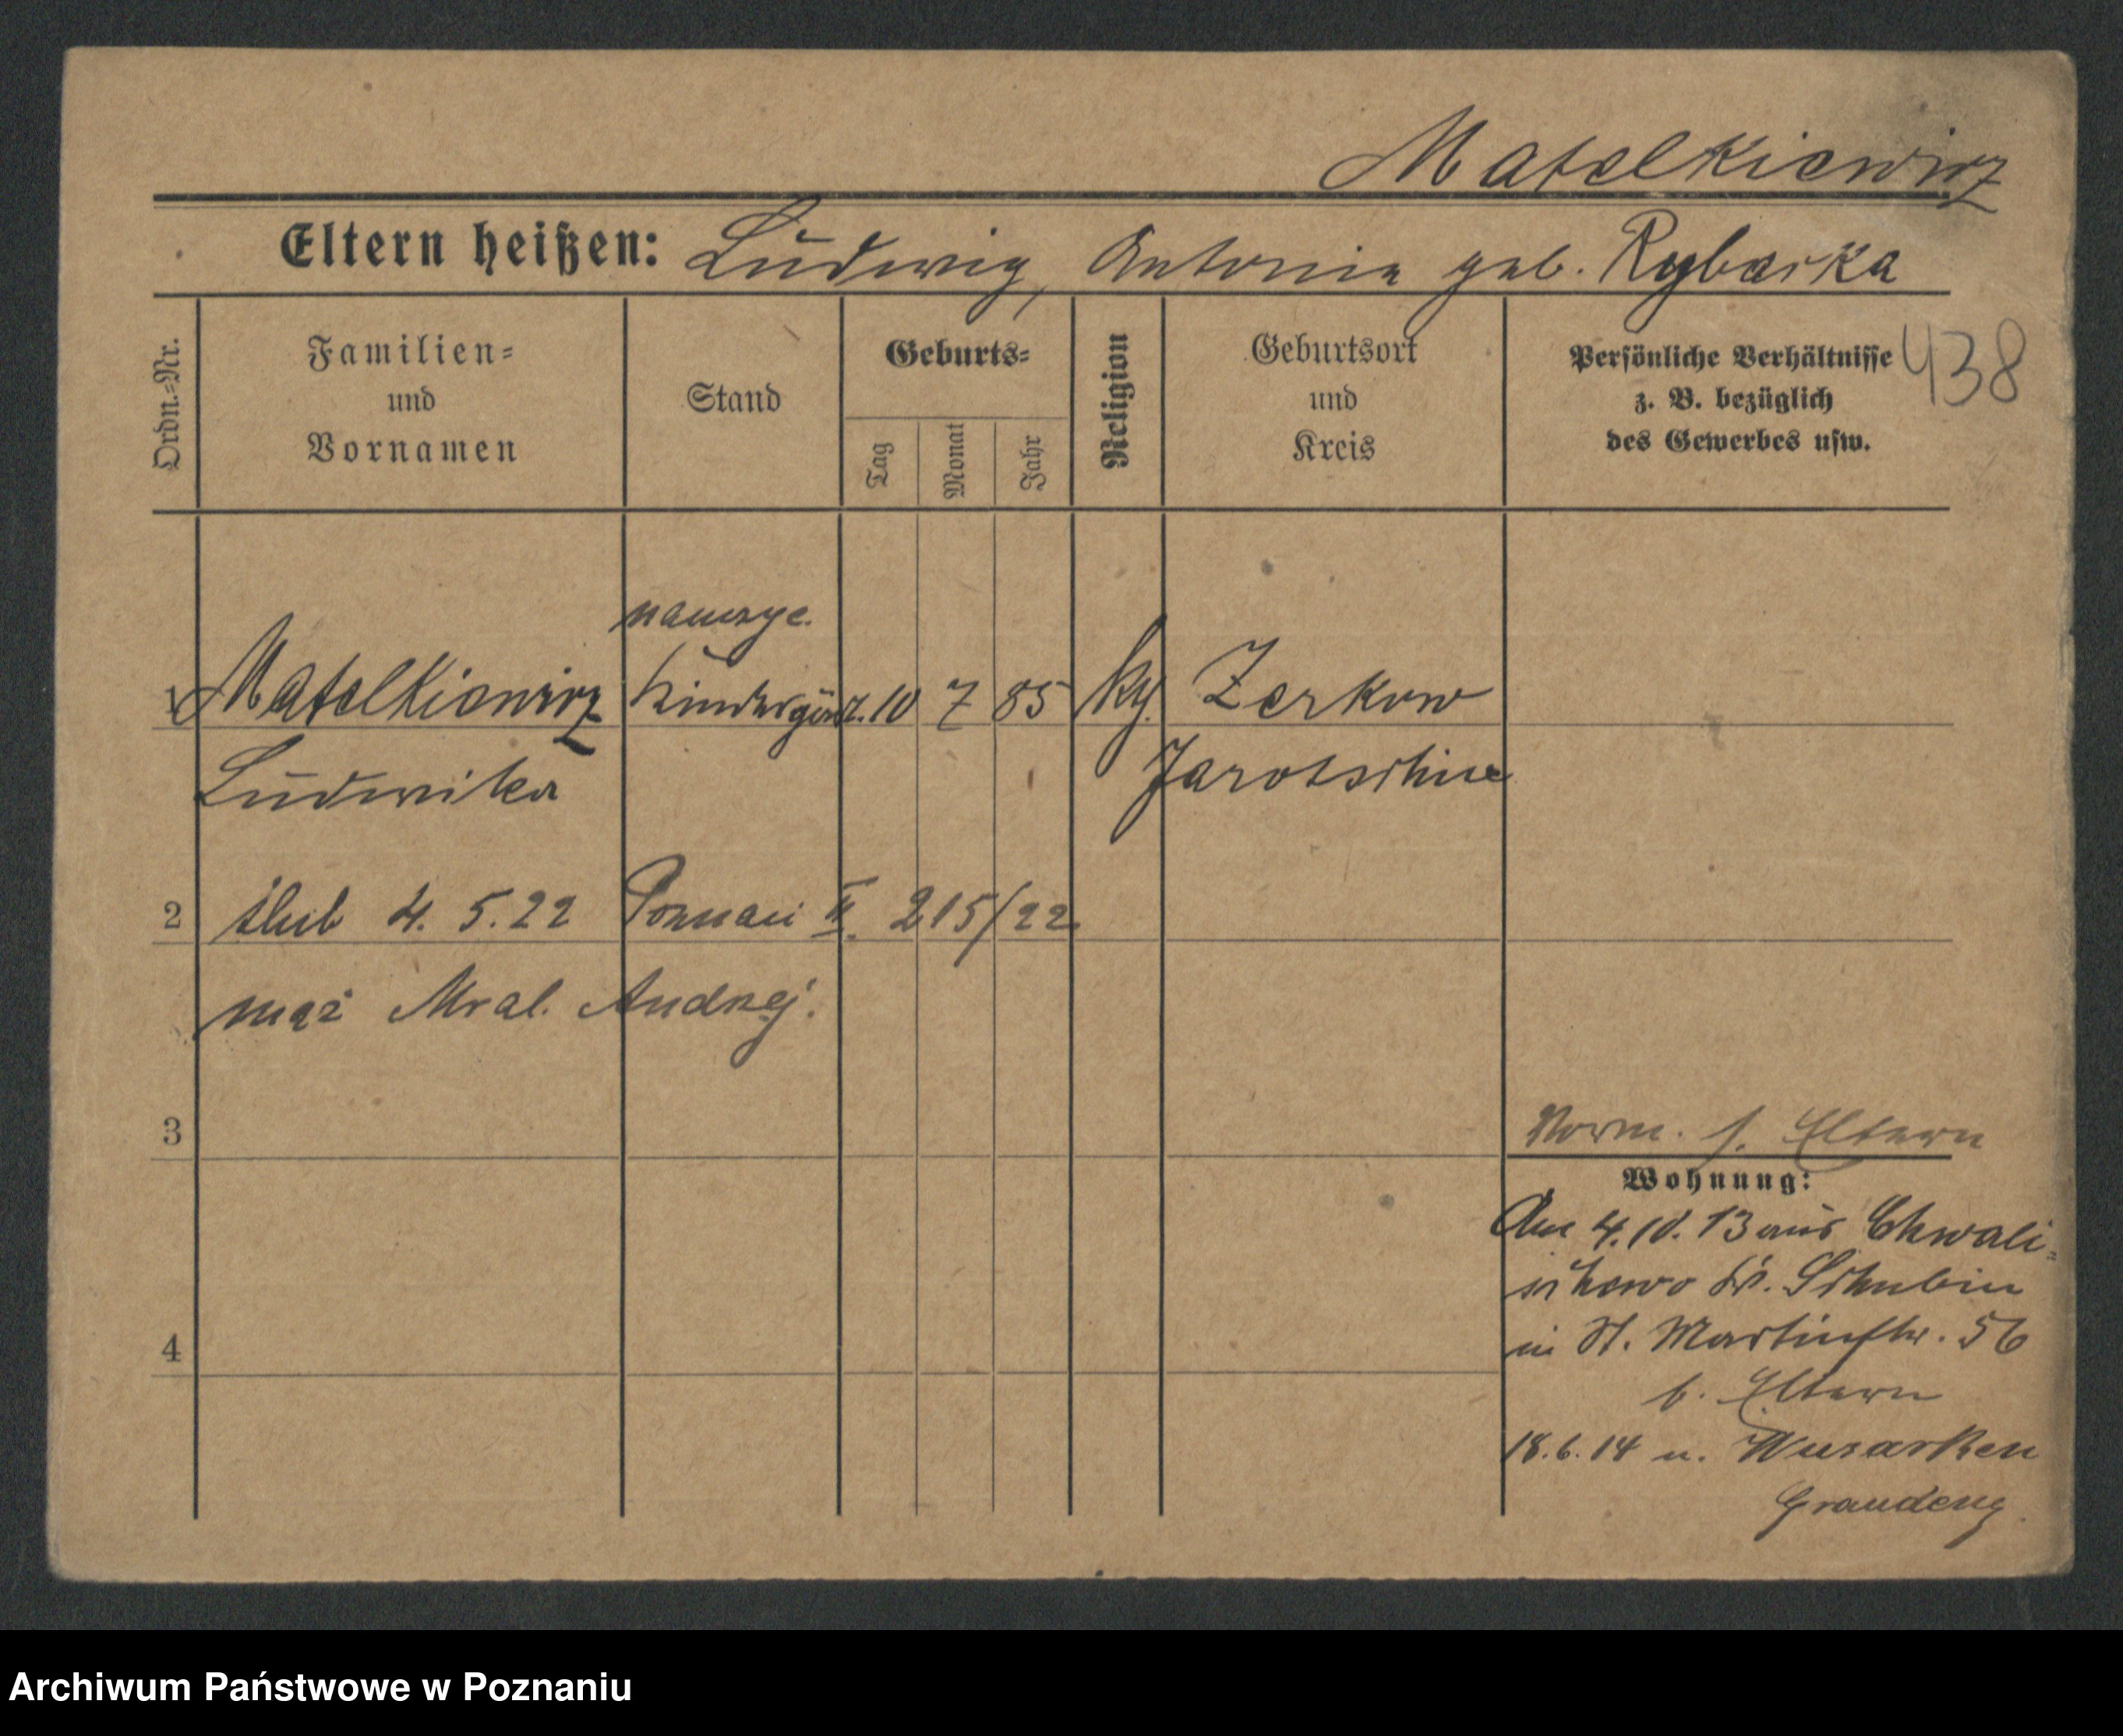 Matelkiewicz
Eltern heißen: Ludwig, Antonia geb. Rybarka
Ordn.-Nr.
Familien-
und
Vornamen
Stand
Geburts-
Tag
Monat
Jahr
Religion
Geburtsort
und
Kreis
Persönliche Verhältnisse
z. B. bezüglich
des Gewerbes usw.
438
nauczyc.
1 Matelkiewicz Kindergärt. 10 7 85 kg. Zerkow
Ludwika Jarotschin
2 ślub 4. 5. 22 Poznań II. 215/22
mąż Mral. Andrzej.
3
Vorm. s. Eltern
Wohnung:
Am 4.10.13 aus Chwali-
schewo Kr. Schubin
in St. Martinstr. 56
b. Eltern
4
18.6.14 n. Wusarken
Graudenz
Archiwum Państwowe w Poznaniu